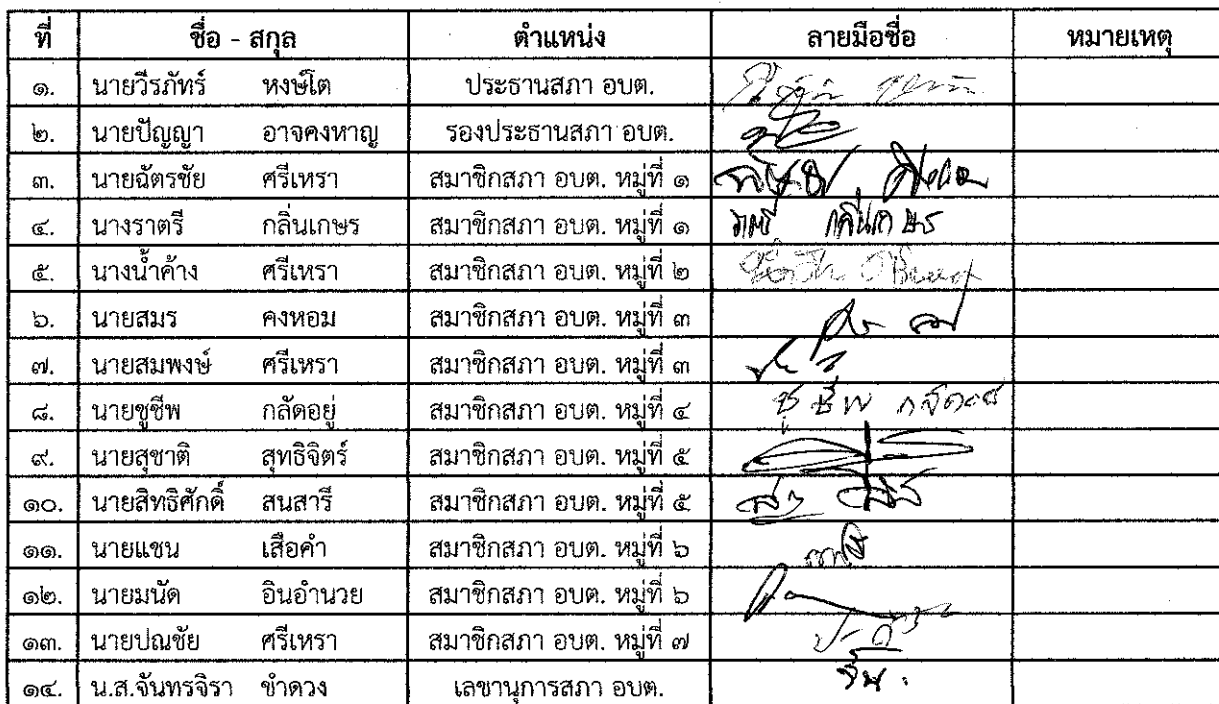 ที่ ชื่อ - สกุล ตำแหน่ง ลายมือชื่อ หมายเหตุ
๑. นายวีรภัทร์ หงษ์โต ประธานสภา อบต.
๒. นายปัญญา อาจคงหาญ รองประธานสภา อบต.
๓. นายฉัตรชัย ศรีเหรา สมาชิกสภา อบต. หมู่ที่ ๑
๔. นางราตรี กลิ่นเกษร สมาชิกสภา อบต. หมู่ที่ ๑ ราตรี กลิ่นเกษร
๕. นางน้ำค้าง ศรีเหรา สมาชิกสภา อบต. หมู่ที่ ๒
๖. นายสมร คงหอม สมาชิกสภา อบต. หมู่ที่ ๓
๗. นายสมพงษ์ ศรีเหรา สมาชิกสภา อบต. หมู่ที่ ๓
๘. นายชูชีพ กลัดอยู่ สมาชิกสภา อบต. หมู่ที่ ๔ ชูชีพ
๙. นายสุชาติ สุทธิจิตร์ สมาชิกสภา อบต. หมู่ที่ ๕
๑๐. นายสิทธิศักดิ์ สนสารี สมาชิกสภา อบต. หมู่ที่ ๕
๑๑. นายแชน เสือคำ สมาชิกสภา อบต. หมู่ที่ ๖
๑๒. นายมนัด อินอำนวย สมาชิกสภา อบต. หมู่ที่ ๖
๑๓. นายปณชัย ศรีเหรา สมาชิกสภา อบต. หมู่ที่ ๗
๑๔. น.ส.จันทรจิรา ขำดวง เลขานุการสภา อบต.